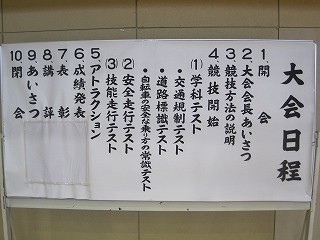 大会日程
1.開会
2.大会会長あいさつ
3.競技方法の説明
4.競技開始
(1)学科テスト
・交通規制テスト
・道路標識テスト
・自転車の安全な乗り方の常識テスト
(2)安全走行テスト
(3)技能走行テスト
5.アトラクション
6.成績発表
7.表彰
8.講評
9.あいさつ
10.閉会